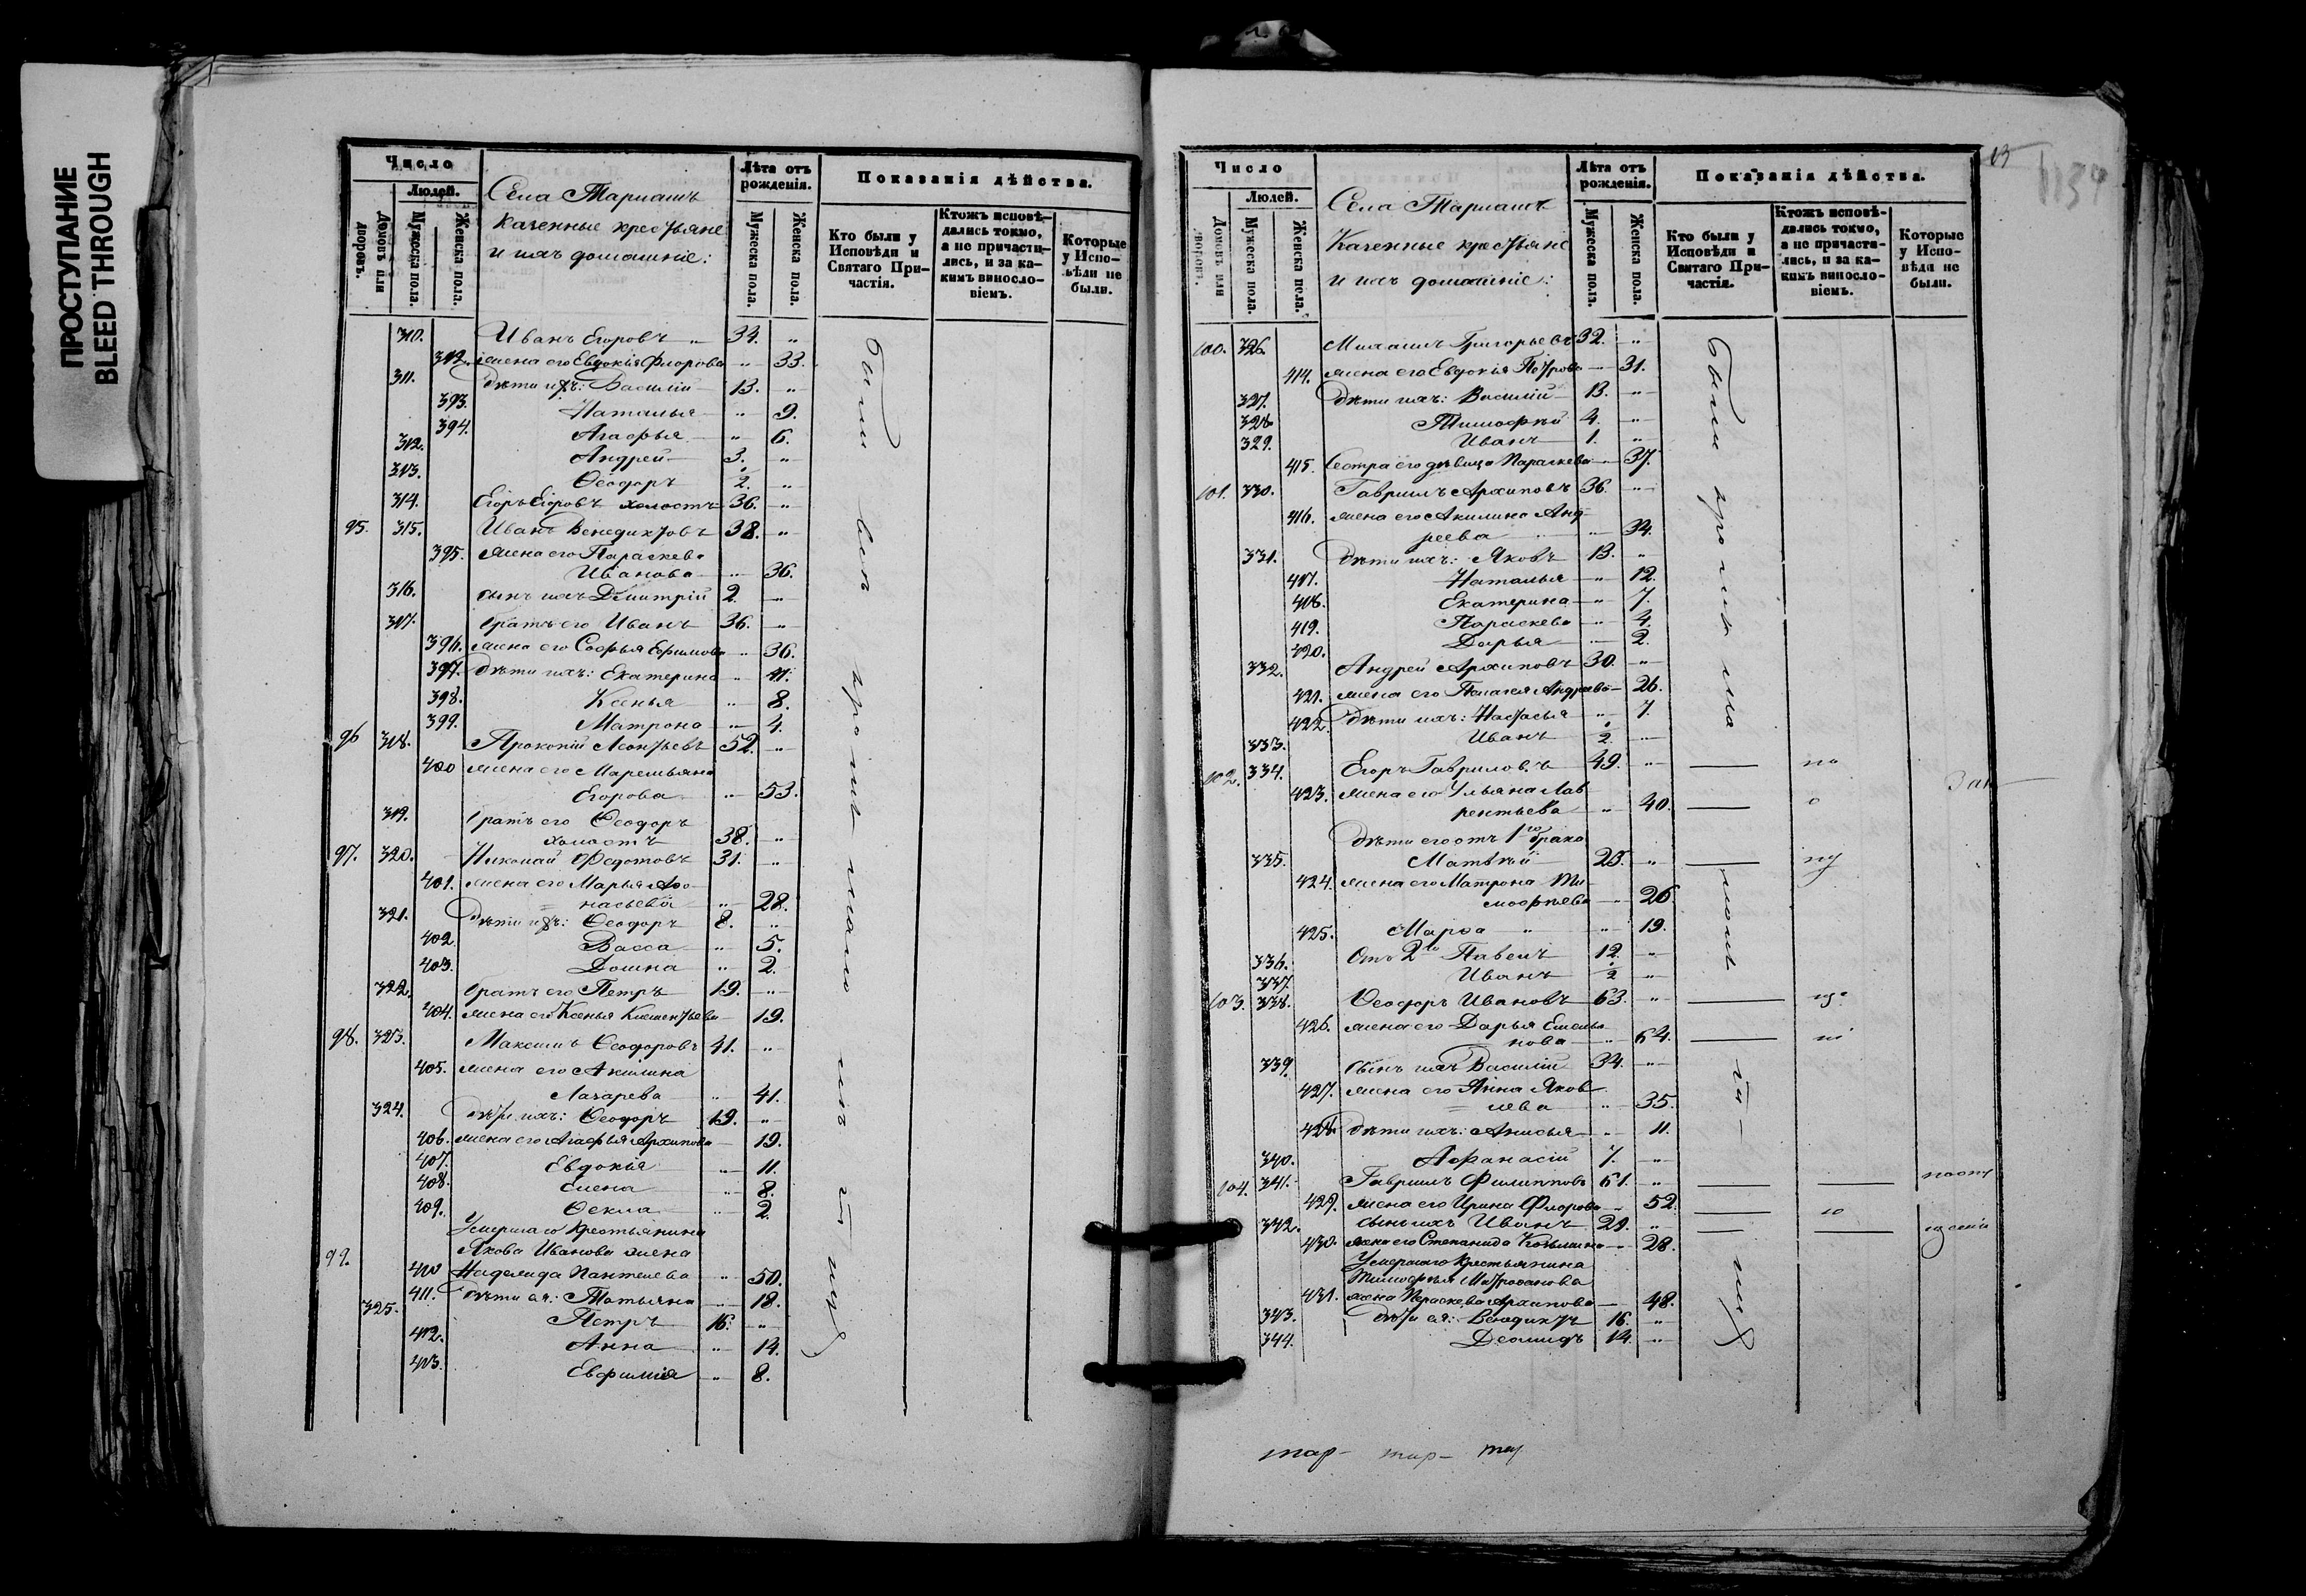 ПРОСТУПАНИЕ
BLEED THROUGH
Число
Людей.
Домовъ или дворовъ.
Мужеска пола.
Женска пола.
Села Тармашъ
Казенные крестьяне
и ихъ домашніе:
Лѣта отъ рожденія.
Мужеска пола.
Женска пола.
Показанія дѣйства.
Кто были у Исповѣди и Святаго Причастія.
Ктожъ исповѣдались токмо, а не причастились, и за какимъ винословіемъ.
Которые у Исповѣди не были.
310. Иванъ Егоровъ 34. "
392. жена его Евдокія Флорова " 33.
311. дѣти ихъ: Василій 13. "
393. Наталья " 9.
394. Агафья " 6.
312. Андрей 3. "
313. Ѳеодоръ 2. "
314. Егоръ Егоровъ холостъ 36. "
95. 315. Иванъ Венедиктовъ 38. "
395. жена его Параскева
Иванова " 36.
316. сынъ ихъ Димитрій 2. "
317. братъ его Иванъ 36. "
396. жена его Софья Ефимова " 36.
397. дѣти ихъ: Екатерина " 11.
398. Ксенья " 8.
399. Матрона " 4.
96 318. Прокопій Леонтьевъ 52. "
400 жена его Маремьяна
Егорова " 53.
319. братъ его Ѳеодоръ
холостъ 38. "
97. 320. Николай Федотовъ 31. "
401. жена его Марья Афо-
насьева " 28.
321. дѣти ихъ: Ѳеодоръ 8. "
402. Васса " 5.
403. Домна " 2.
322. братъ его Петръ 19. "
404. жена его Ксенья Климентьева 19.
98. 323. Максимъ Ѳеодоровъ 41. "
405. жена его Акилина
Лазарева " 41.
324. дѣти ихъ: Ѳеодоръ 19. "
406. жена его Агафья Архипова 19.
407. Евдокія " 11.
408. Елена " 8.
409. Ѳекла " 2.
Умершаго крестьянина
99. Якова Иванова жена
410 Пантелева " 50.
411. дѣти ея: Татьяна " 18.
325. Петръ 16. "
412. Анна " 14.
413. Евфимія " 8.
были
Число
Людей.
Домовъ или дворовъ.
Мужеска пола.
Женска пола.
Села Тармашъ
Казенные крестьяне
и ихъ домашніе:
Лѣта отъ рожденія.
Мужеска пола.
Женска пола.
Показанія дѣйства.
Кто были у Исповѣди и Святаго Причастія.
Ктожъ исповѣдались токмо, а не причастились, и за какимъ винословіемъ.
Которые у Исповѣди не были.
100. 326. Михаилъ Григорьевъ 32. "
414. жена его Евдокія Петрова 31.
327. дѣти ихъ: Василій 13. "
328. Тимофей 4. "
329. Иванъ 1. "
415. Сестра его дѣвица Параскева 37.
101. 330. Гавриилъ Архиповъ 36. "
416. жена его Акилина Анд-
реева " 34.
331. дѣти ихъ: Яковъ 13. "
417. Наталья " 12.
418. Екатерина " 7.
419. Параскева " 4.
420. Дарья " 2.
332. Андрей Архиповъ 30. "
421. жена его Пелагея Андреева 26.
422. дѣти ихъ: Настасья " 7.
333. Иванъ 2. "
102. 334. Егоръ Гавриловъ 49. "
423. жена его Ульяна Лав-
рентьева " 40.
дѣти его отъ 1го брака
335. Матвѣй 25. "
424. жена его Матрона Ти-
мофеева " 26
425. Марѳа " 19.
336. Отъ 2го Павелъ 12. "
337 Иванъ 2 "
103. 338. Ѳеодоръ Ивановъ 63. "
426. жена его Дарья Емелья-
нова " 64.
339. сынъ ихъ Василій 34. "
427. жена его Анна Яков-
лева " 35.
428. дѣти ихъ: Анисья " 11.
340. Афанасій 7. "
104. 341. Гавриилъ Филипповъ 61. "
429. жена его Ирина Флорова 52.
342. сынъ ихъ Иванъ 29. "
430. жена его Степанида Козьмина 28.
Умершаго крестьянина
Тимофея Митрофанова
431. жена Параскева Архипова 48.
343. дѣти ея: Венедиктъ 16. "
344. Деомидъ 14. "
были